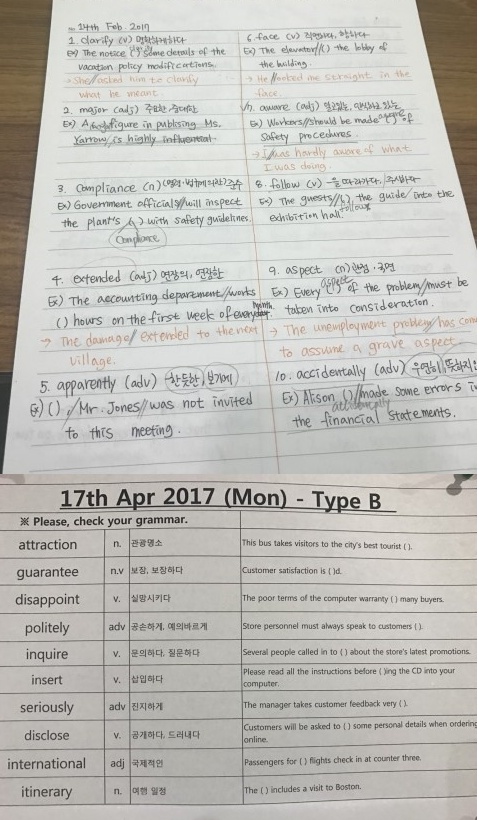 14th Feb. 2017
1. clarify (v) 명확하게하다
Ex) The notice () some details of the
vacation policy modifications.
→ She/asked him to clarify
what he meant
2. major (adj) 주요한, 중대한
Ex) A figure in publising Ms.
Yarrow is highly influential.
3. Compliance (n) 준수
Ex) Government officials//will inspect
the plant's () with safety guidelines.
Compliance
4. extended (adj) 연장의, 연장한
Ex) The accounting department//works
() hours on the first week of every month.
→ The damage/ extended to the next
village.
5. apparently (adv) 보기에
Ex) (), Mr. Jones//was not invited
to this meeting.
6. face (v) 직면하다, 향하다
Ex) The elevator//() the lobby of
the building.
→ He/looked me straight in the
face.
7. aware (adj)
Ex) Workers//should be made () of
aware
Safety procedures.
→ I//was hardly aware of what
I was doing.
8. follow (v) ~을 따라가다, 주시하다
Ex) The guests//(), the guide/into the
follow
exhibition hall.
9. aspect (n) 관점, 국면
aspect
Ex) Every () of the problem/must be
taken into consideration.
→ The unemployment problem/has com
to assume a grave aspect.
10. accidentally (adv) 우연히, 뜻하지
Ex) Alison ()/made some errors in
accidentally
the financial statements.
17th Apr 2017 (Mon) - Type B
※ Please, check your grammar.
attraction n. 관광명소 This bus takes visitors to the city's best tourist ( ).
guarantee n.v 보장, 보장하다 Customer satisfaction is ( )d.
disappoint v. 실망시키다 The poor terms of the computer warranty ( ) many buyers.
politely adv 공손하게, 예의바르게 Store personnel must always speak to customers ( ).
inquire v. 문의하다, 질문하다 Several people called in to ( ) about the store's latest promotions.
insert v. 삽입하다 Please read all the instructions before ( )ing the CD into your
computer.
seriously adv 진지하게 The manager takes customer feedback very ( ).
disclose v. 공개하다, 드러내다 Customers will be asked to ( ) some personal details when ordering
online.
international adj 국제적인 Passengers for ( ) flights check in at counter three.
itinerary n. 여행 일정 The ( ) includes a visit to Boston.